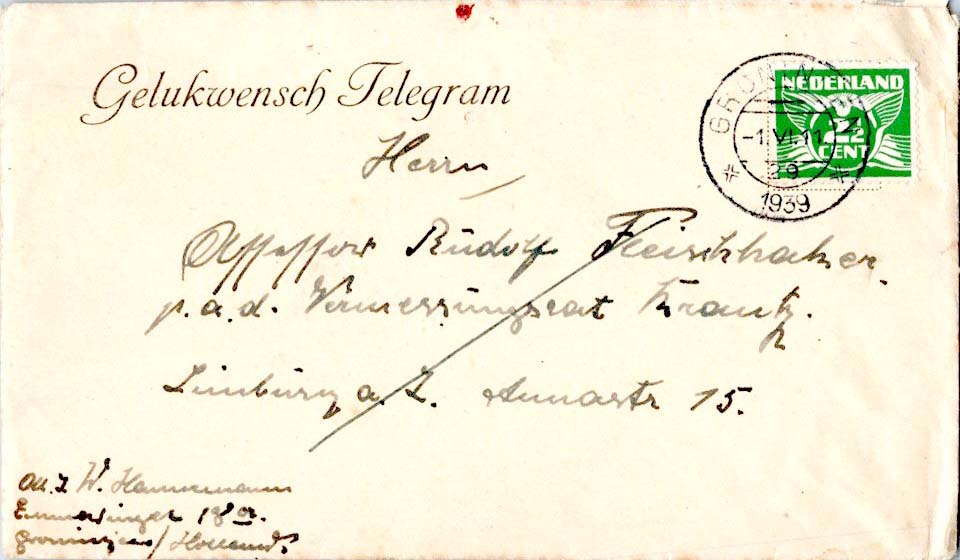 Gelukwensch Telegram
NEDERLAND
2½
CENT
GRONINGEN
-1.VI.11
1939
Herrn
Assessor Rudolf Fleischhaker.
p.a.d. Vermessungsrat Krantz.
Limburg a. L. Annastr 15.
W. Hannemann
Groningen / Holland